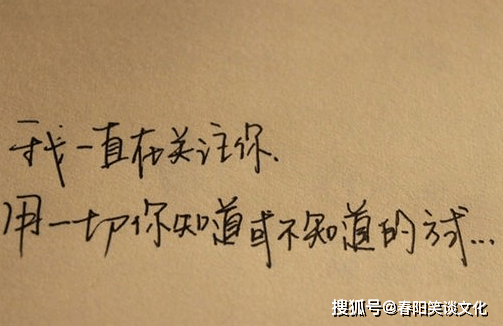 我一直在关注你.
用一切你知道或不知道的方式...
搜狐号@春阳笑谈文化